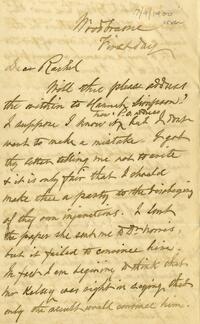 Woodbourne
First day
7/9/1900
Dear Rachel
Will thee please address
the within to Hannah Simpson?
her P.O. address
I suppose I know it, but I don't
want to make a mistake. I got
thy letter telling me not to write
& it is only fair that I should
make thee a party to the disobeying
of thy own injunctions. I sent
the paper she sent me to Dr. Morris,
but it failed to convince him.
In fact I am beginning to think that
Mr Kelsey was right in saying, that
only the result would convince him.